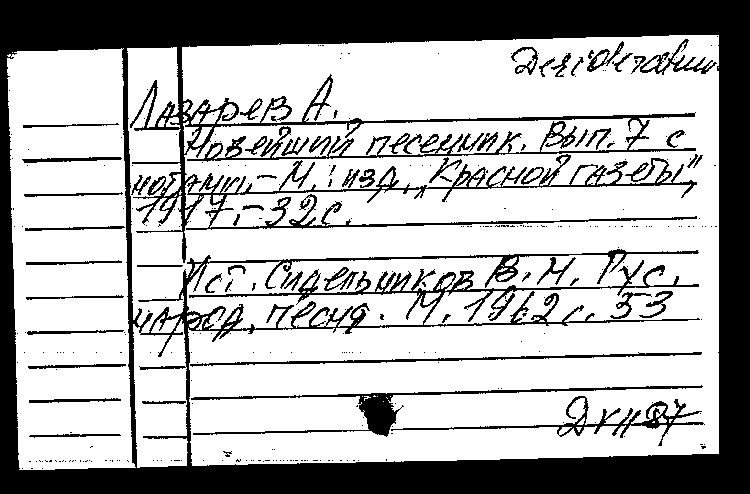 Лазарев А.
Новейший песенник. Вып. 7 с
нотами. – М.: изд. „Красной газеты",
1917. – 32 с.
Ист. Сидельников В. М. Рус.
народ. песня. М. 1962 с. 53